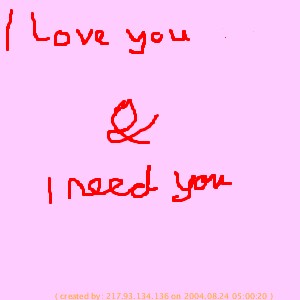 I Love you
&
I need you
( created by: 217.93.134.136 on 2004.08.24 05:00:20 )